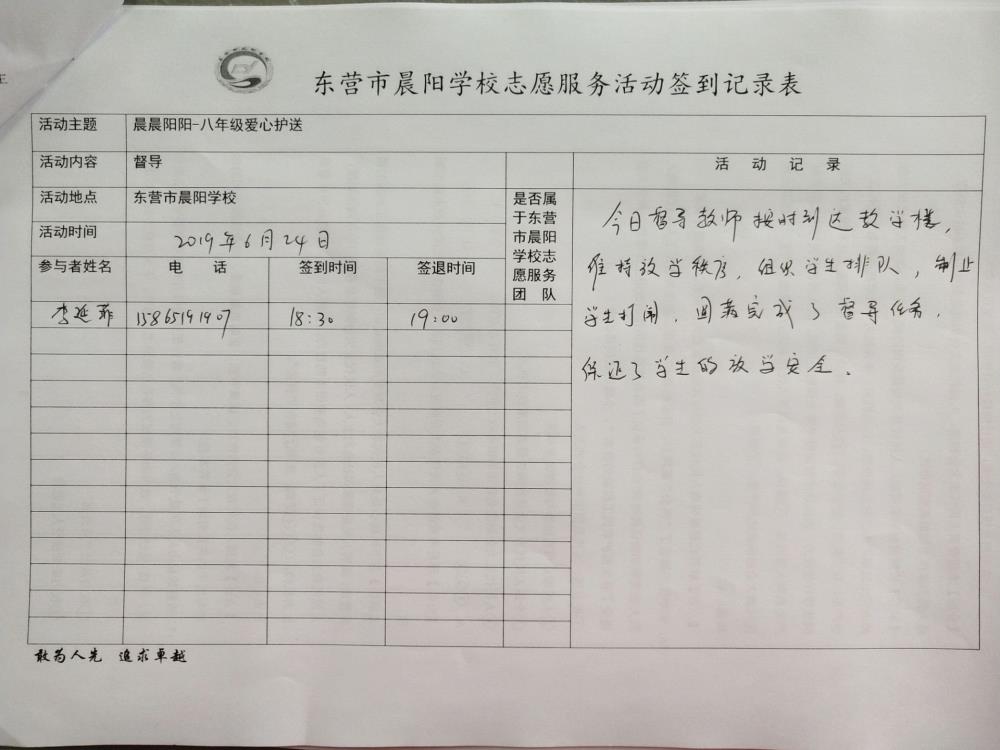 王
东营市晨阳学校志愿服务活动签到记录表
活动主题 晨晨阳阳-八年级爱心护送
活动内容 督导
活动地点 东营市晨阳学校
活动时间 2019年6月24日
参与者姓名 电 话 签到时间 签退时间
是否属
于东营
市晨阳
学校志
愿服务
团 队
李延菲 15865191907 18:30 19:00
活 动 记 录
今日督导教师按时到达教学楼,
维持放学秩序,组织学生排队,制止
学生打闹,圆满完成了督导任务,
保证了学生的放学安全.
敢为人先 追求卓越